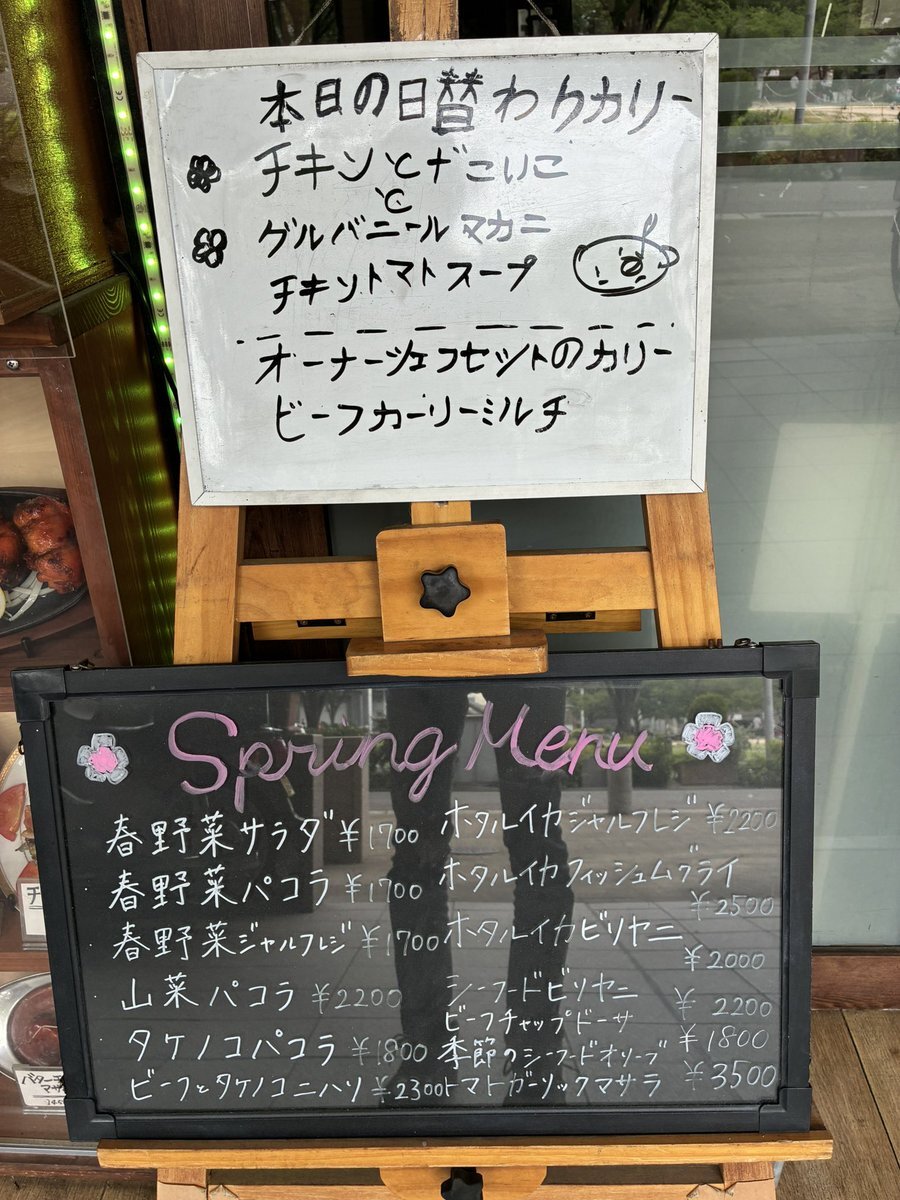 本日の日替わりカリー
チキンとナすこいこ
と
グルバニールマカニ
チキントマトスープ
オーナーシェフセットのカリー
ビーフカーリーミルチ
Spring Menu
春野菜サラダ ¥1700
春野菜パコラ ¥1700
春野菜ジャルフレジ ¥1700
山菜パコラ ¥2200
タケノコパコラ ¥1800
ビーフとタケノコニハリ ¥2300
ホタルイカジャルフレジ ¥2200
ホタルイカフィッシュムグライ
¥2500
ホタルイカビリヤニ
¥2000
シーフードビリヤニ ¥2200
ビーフチャップドーサ ¥1800
季節のシーフードオリーブ
トマトガーリックマサラ ¥3500